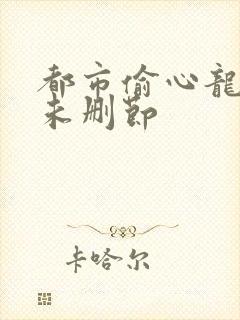 都市偷心龍
未删節
卡哈尔